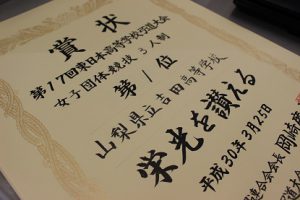 賞状
第17回東日本高等学校弓道大会
女子団体競技 3人制
第1位
山梨県立吉田高等学校
栄光を讃える
平成30年3月25日
連合会会長 岡崎